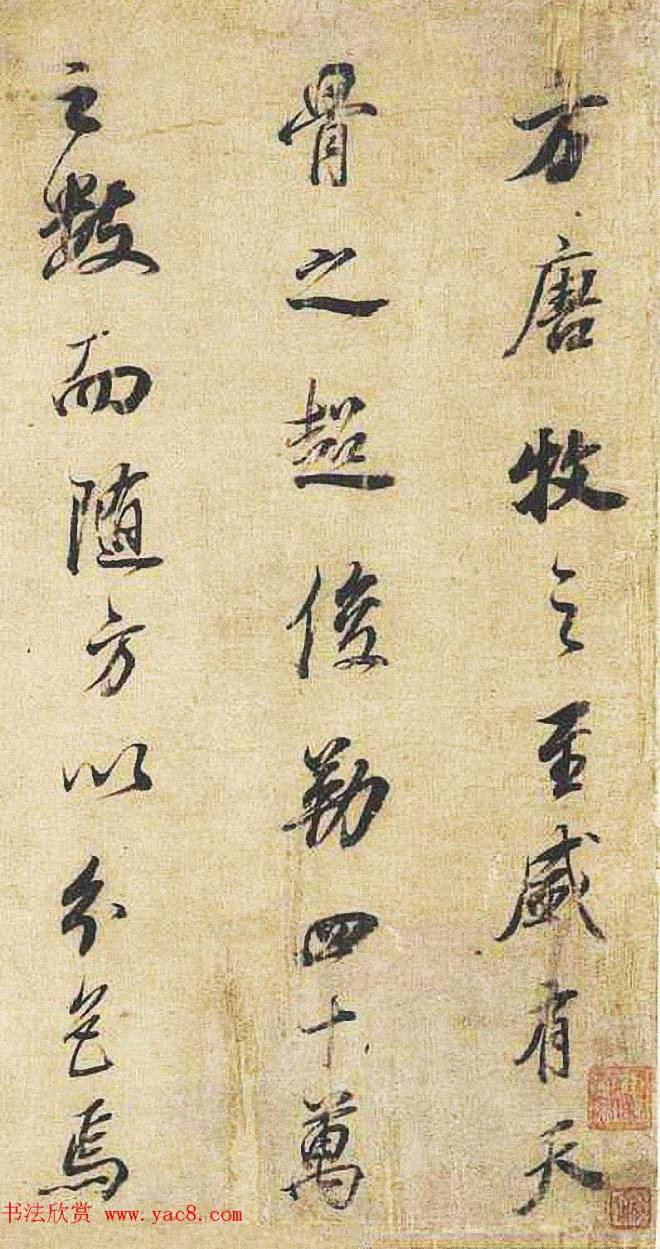 方唐牧之至盛有天
骨之超俊勒四十萬
之數而随方以分色焉
书法欣赏 www.yac8.com